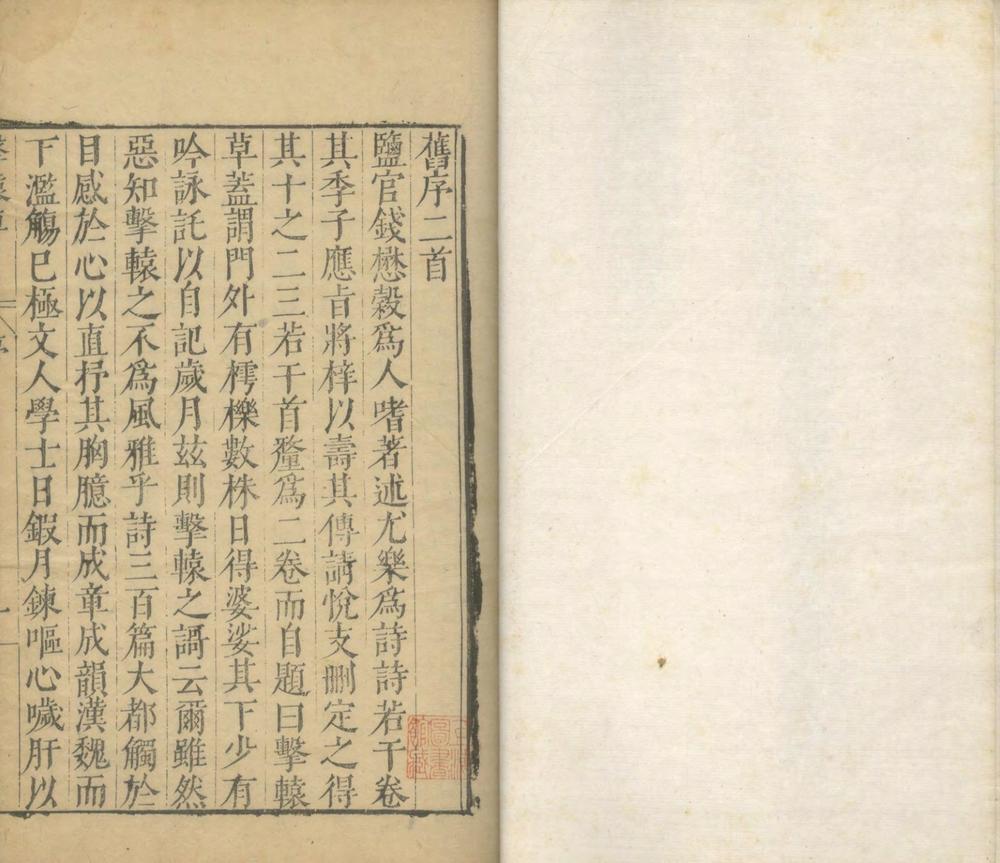 舊序二首
鹽官錢懋穀爲人嗜著述尤樂爲詩詩若干卷
其季子應㫖將梓以壽其傳請悅支刪定之得
其十之二三若干首釐爲二卷而自題曰擊轅
草蓋謂門外有樗櫟數株日得婆娑其下少有
吟詠託以自記歲月茲則擊轅之謌云爾雖然
惡知擊轅之不爲風雅乎詩三百篇大都觸於
目感於心以直抒其胸臆而成章成韻漢魏而
下濫觴已極文人學士日鍜月鍊嘔心噦肝以